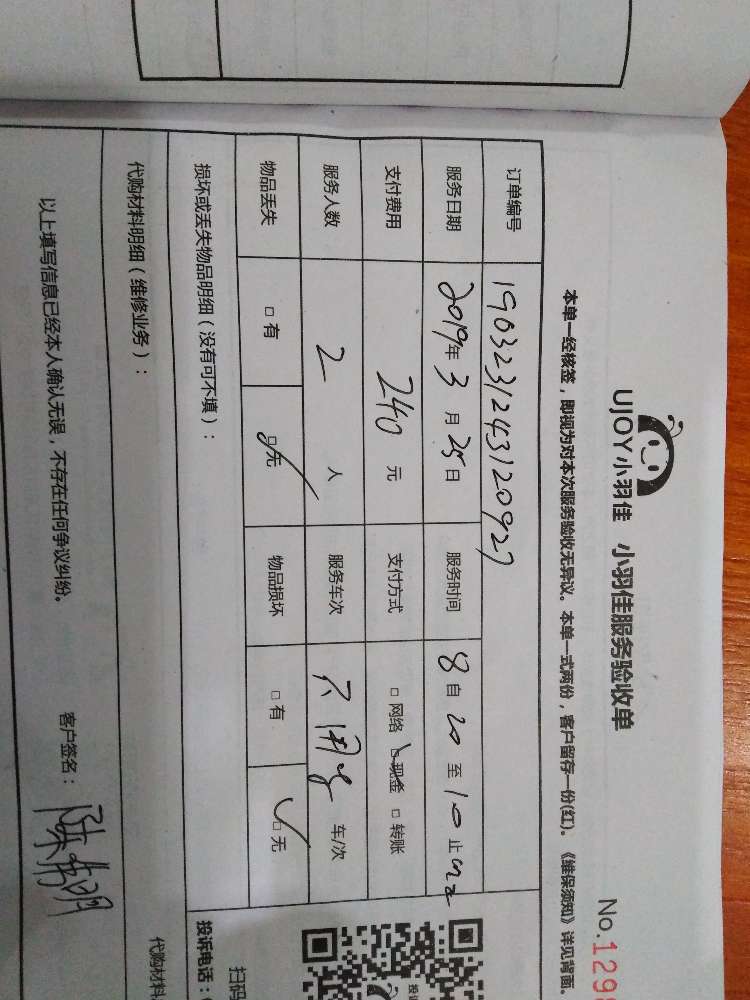 UJOY小羽佳 小羽佳服务验收单
No.129
本单一经核签，即视为对本次服务验收无异议。本单一式两份，客户留存一份(红)。《维保须知》详见背面。
订单编号 1903231243120927
服务日期 2019年3月25日 服务时间 8自20至10止
支付费用 240元 支付方式 □网络 □现金 □转账
服务人数 2人 服务车次 车/次
物品丢失 □有 □无 物品损坏 □有 □无
损坏或丢失物品明细（没有可不填）：
代购材料明细（维修业务）：
代购材料
以上填写信息已经本人确认无误，不存在任何争议纠纷。 客户签名：
扫码
投诉电话：